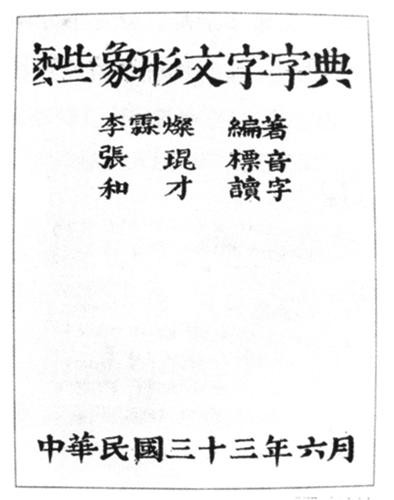 麽些象形文字字典
李霖燦 編著
張琨 標音
和才 讀字
中華民國三十三年六月